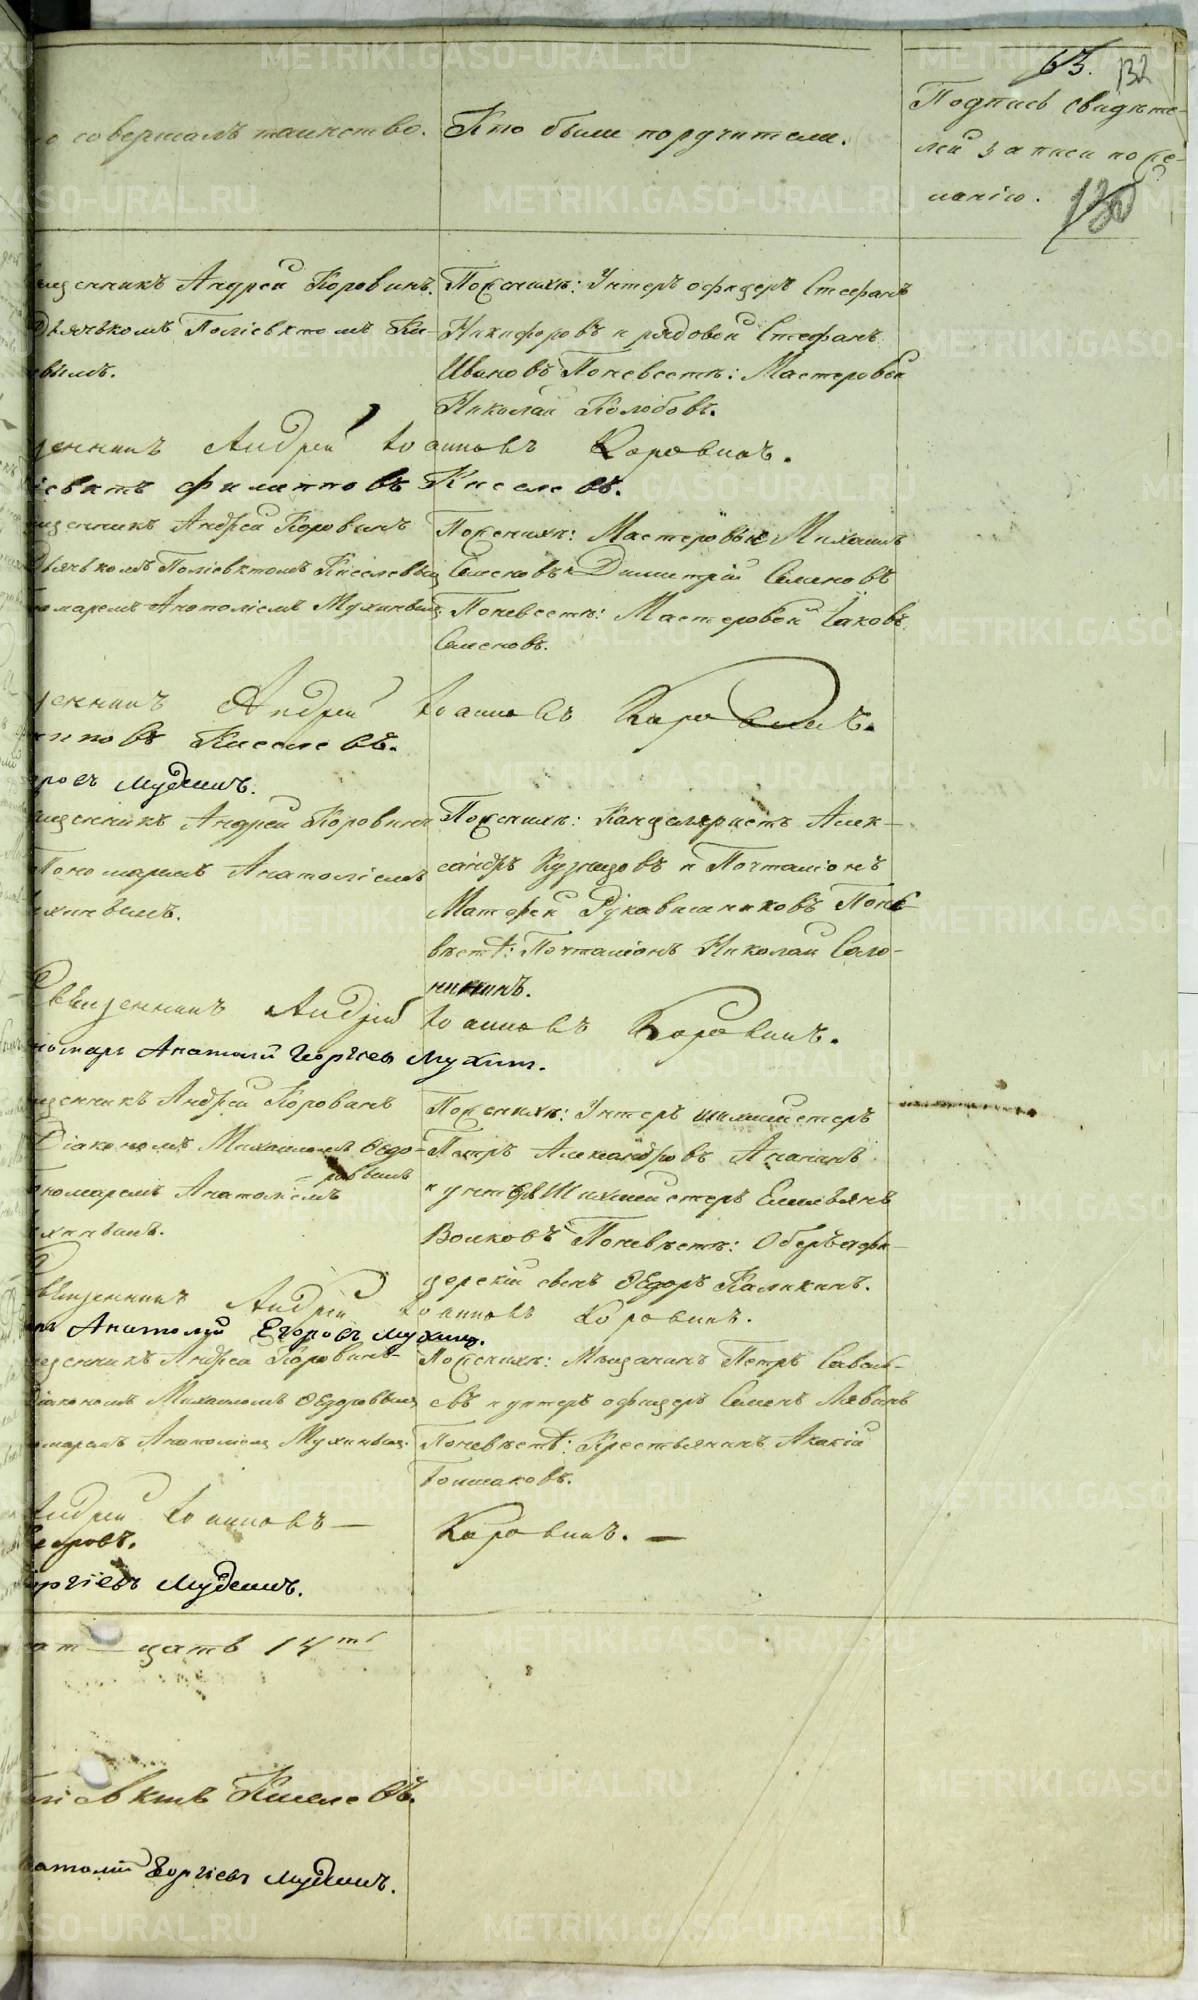 63. 132
то совершалъ таинство. Кто были поручители. Подпись свидѣте-
лей записи по же-
ланію. 130
священникъ Андрей Коровинъ.
Дьячькомъ Поліевктомъ Ки-
евымъ.
По женихѣ: Унтеръ офицеръ Стефанъ
Никифоровъ и рядовой Стефанъ
Ивановъ По невестѣ: Мастеровой
Николай Колобовъ.
щенникъ Андрей Іоанновъ Коровинъ.
іевктъ Филипповъ Киселевъ.
щенникъ Андрей Коровинъ
Дьячькомъ Поліевктомъ Киселевым
номаремъ Анотоліемъ Мухиным
По женихѣ: Мастеровые Михаилъ
Семеновъ и Димитрій Семеновъ
По невестѣ: Мастеровой Іаковъ
Семеновъ.
щенникъ Андрей Іоанновъ Коровинъ.
липповъ Киселевъ.
гровъ Мухинъ.
щенникъ Андрей Коровинъ
Пономаремъ Анатоліемъ
ухинымъ.
По женихѣ: Канцеляристъ Алек-
сандръ Кузнецовъ и Почталіонъ
Матфей Рукавишниковъ По не
вѣстѣ: Почталіонъ Николай Соло-
нининъ.
Священникъ Андрей Іоанновъ Коровинъ.
номарь Анатолій Георгіев Мухин.
щенникъ Андрей Коровинъ
Діакономъ Михаиломъ Ѳедо-
ровымъ
Пономаремъ Анатоліемъ
ухинымъ.
По женихѣ: Унтеръ шихмейстеръ
Петръ Александровъ Ананинъ
и унтеръ Шихмейстеръ Емильянъ
Волковъ По невѣстѣ: Оберъ офи-
церскій сынъ Ѳедоръ Калинкинъ.
Священникъ Андрей Іоанновъ Коровинъ.
Анатолій Егоровъ Мухинъ.
щенникъ Андрей Коровинъ
Діакономъ Михаиломъ Ѳедоровым
номаремъ Анатоліем Мухиным.
По женихѣ: Мѣщанинъ Петръ Савель-
евъ и унтеръ офицеръ Семенъ Левинъ
По невѣстѣ: Крестьянинъ Акакій
Андрей Іоанновъ — Коровинъ. —
ѳедоровъ.
оргіевъ Мухинъ.
цать 14
поліевктъ Киселевъ.
натолій Георгіевъ Мухинъ.